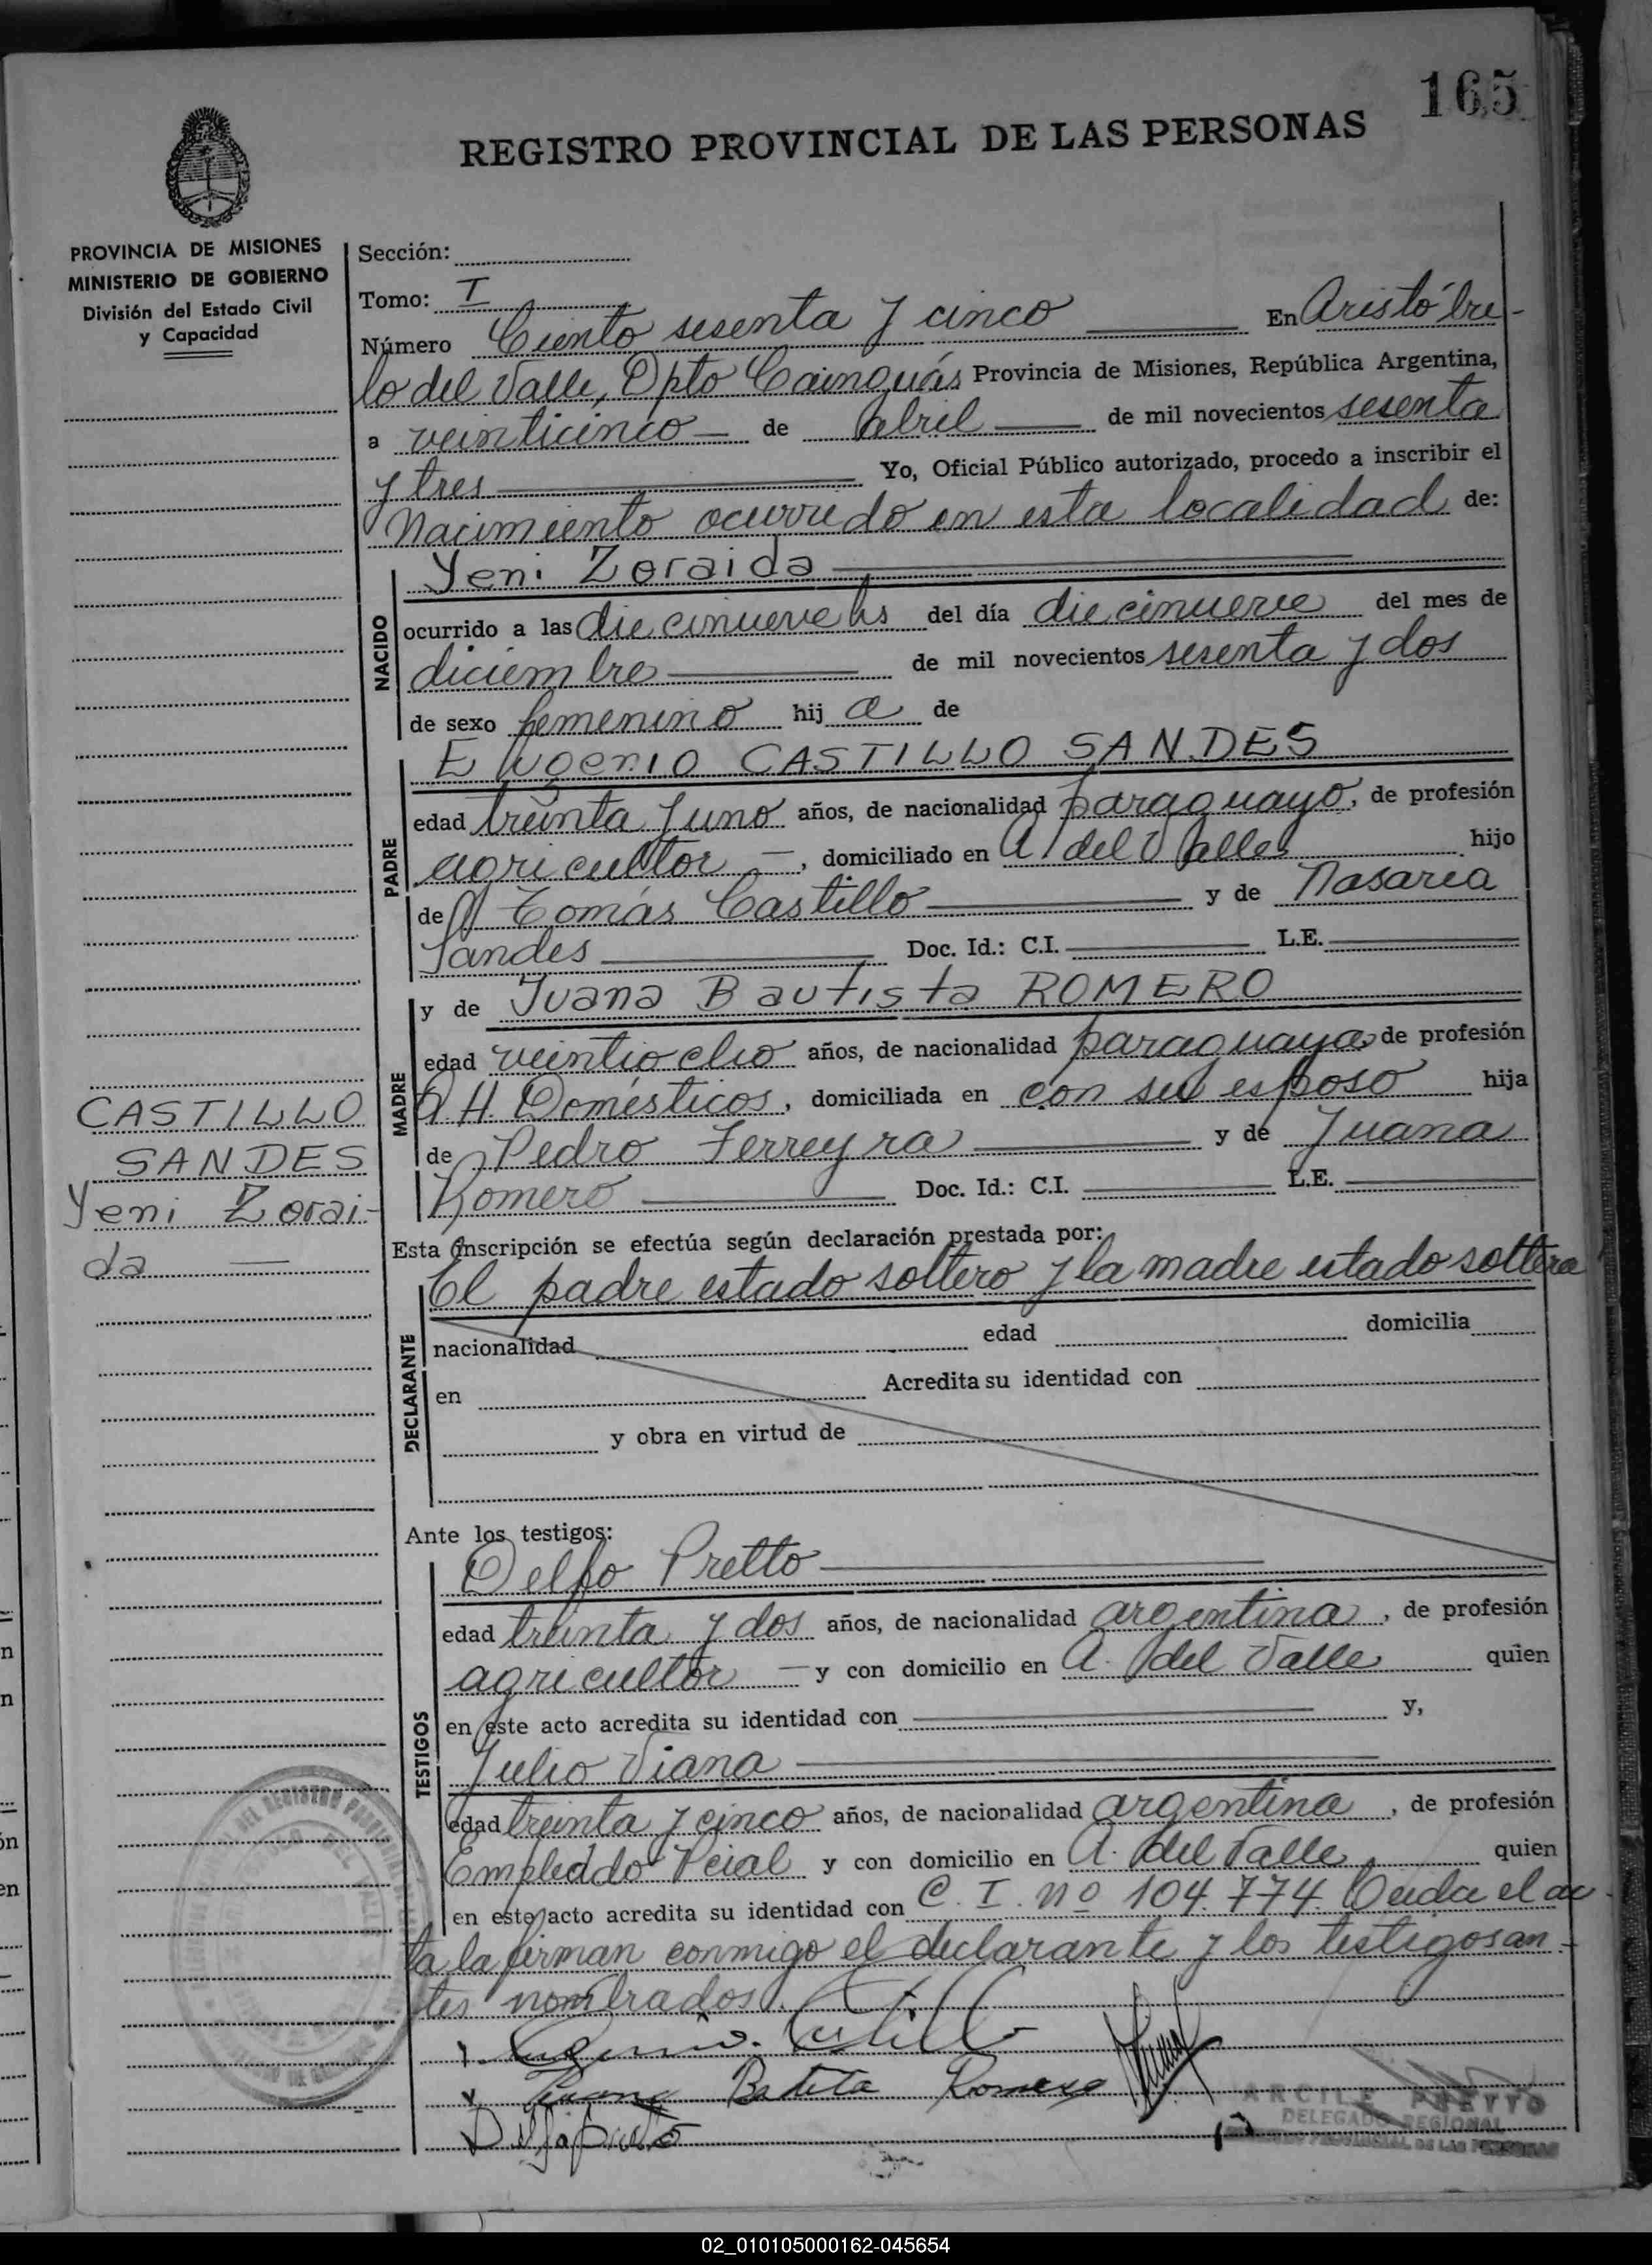 165
REGISTRO PROVINCIAL DE LAS PERSONAS
PROVINCIA DE MISIONES
MINISTERIO DE GOBIERNO
División del Estado Civil
y Capacidad
Sección:
Tomo: I
Número Ciento sesenta y cinco En Aristóbu-
lo del Valle, Dpto Cainguás Provincia de Misiones, República Argentina,
a veinticinco de abril de mil novecientos sesenta
y tres Yo, Oficial Público autorizado, procedo a inscribir el
Nacimiento ocurrido en esta localidad de:
Yeni Zoraida
NACIDO
ocurrido a las diecinueve hs del día diecinueve del mes de
diciembre de mil novecientos sesenta y dos
de sexo femenino hij a de
Eugenio CASTILLO SANDES
PADRE
edad treinta y uno años, de nacionalidad paraguayo, de profesión
agricultor, domiciliado en A. del Valle hijo
de Tomás Castillo y de Nasaria
Sandes Doc. Id.: C.I. L.E.
y de Juana Bautista ROMERO
MADRE
edad veintiocho años, de nacionalidad paraguaya, de profesión
Q. H. Domésticos, domiciliada en con su esposo hija
de Pedro Ferreyra y de Juana
Romero Doc. Id.: C.I. L.E.
CASTILLO
SANDES
Yeni Zorai-
da
Esta inscripción se efectúa según declaración prestada por:
El padre estado soltero y la madre estado soltera
DECLARANTE
nacionalidad edad domicilia
en Acredita su identidad con
y obra en virtud de
Ante los testigos:
Delfo Pretto
TESTIGOS
edad treinta y dos años, de nacionalidad argentina, de profesión
agricultor y con domicilio en A. del Valle quien
en este acto acredita su identidad con y,
Julio Viana
edad treinta y cinco años, de nacionalidad argentina, de profesión
Empleado Pcial y con domicilio en A. del Valle quien
en este acto acredita su identidad con C. I. Nº 104.774. Leida el ac-
ta la firman conmigo el declarante y los testigos an-
tes nombrados.
Juana Batita Romero
ARCILE PRETTO
DELEGADO REGIONAL
REGISTRO PROVINCIAL DE LAS PERSONAS
02_010105000162-045654